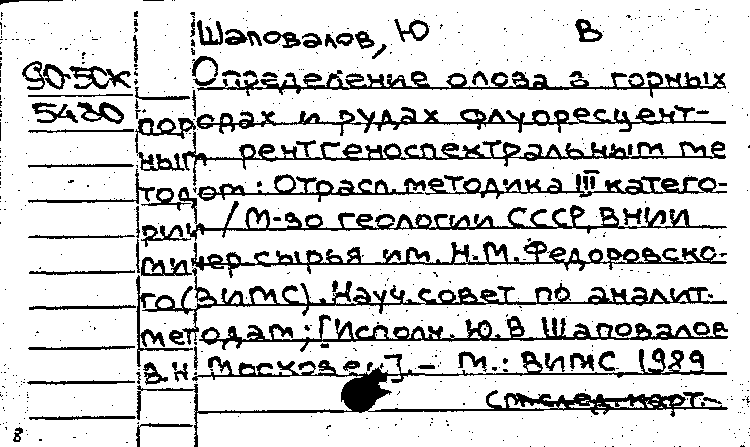 Шаповалов, Ю В
90-50к Определение олова в горных
5480 породах и рудах флуоресцент-
ным рентгеноспектральным ме
тодом: Отрасл. методика III катего-
рии / М-во геологии СССР, ВНИИ
минер. сырья им. Н.М. Федоровско-
го (ВИМС). Науч. совет по аналит.
методам; [Исполн. Ю.В Шаповалов
В.Н. Московец]. - М.: ВИМС, 1989
см. след. карт.-
8